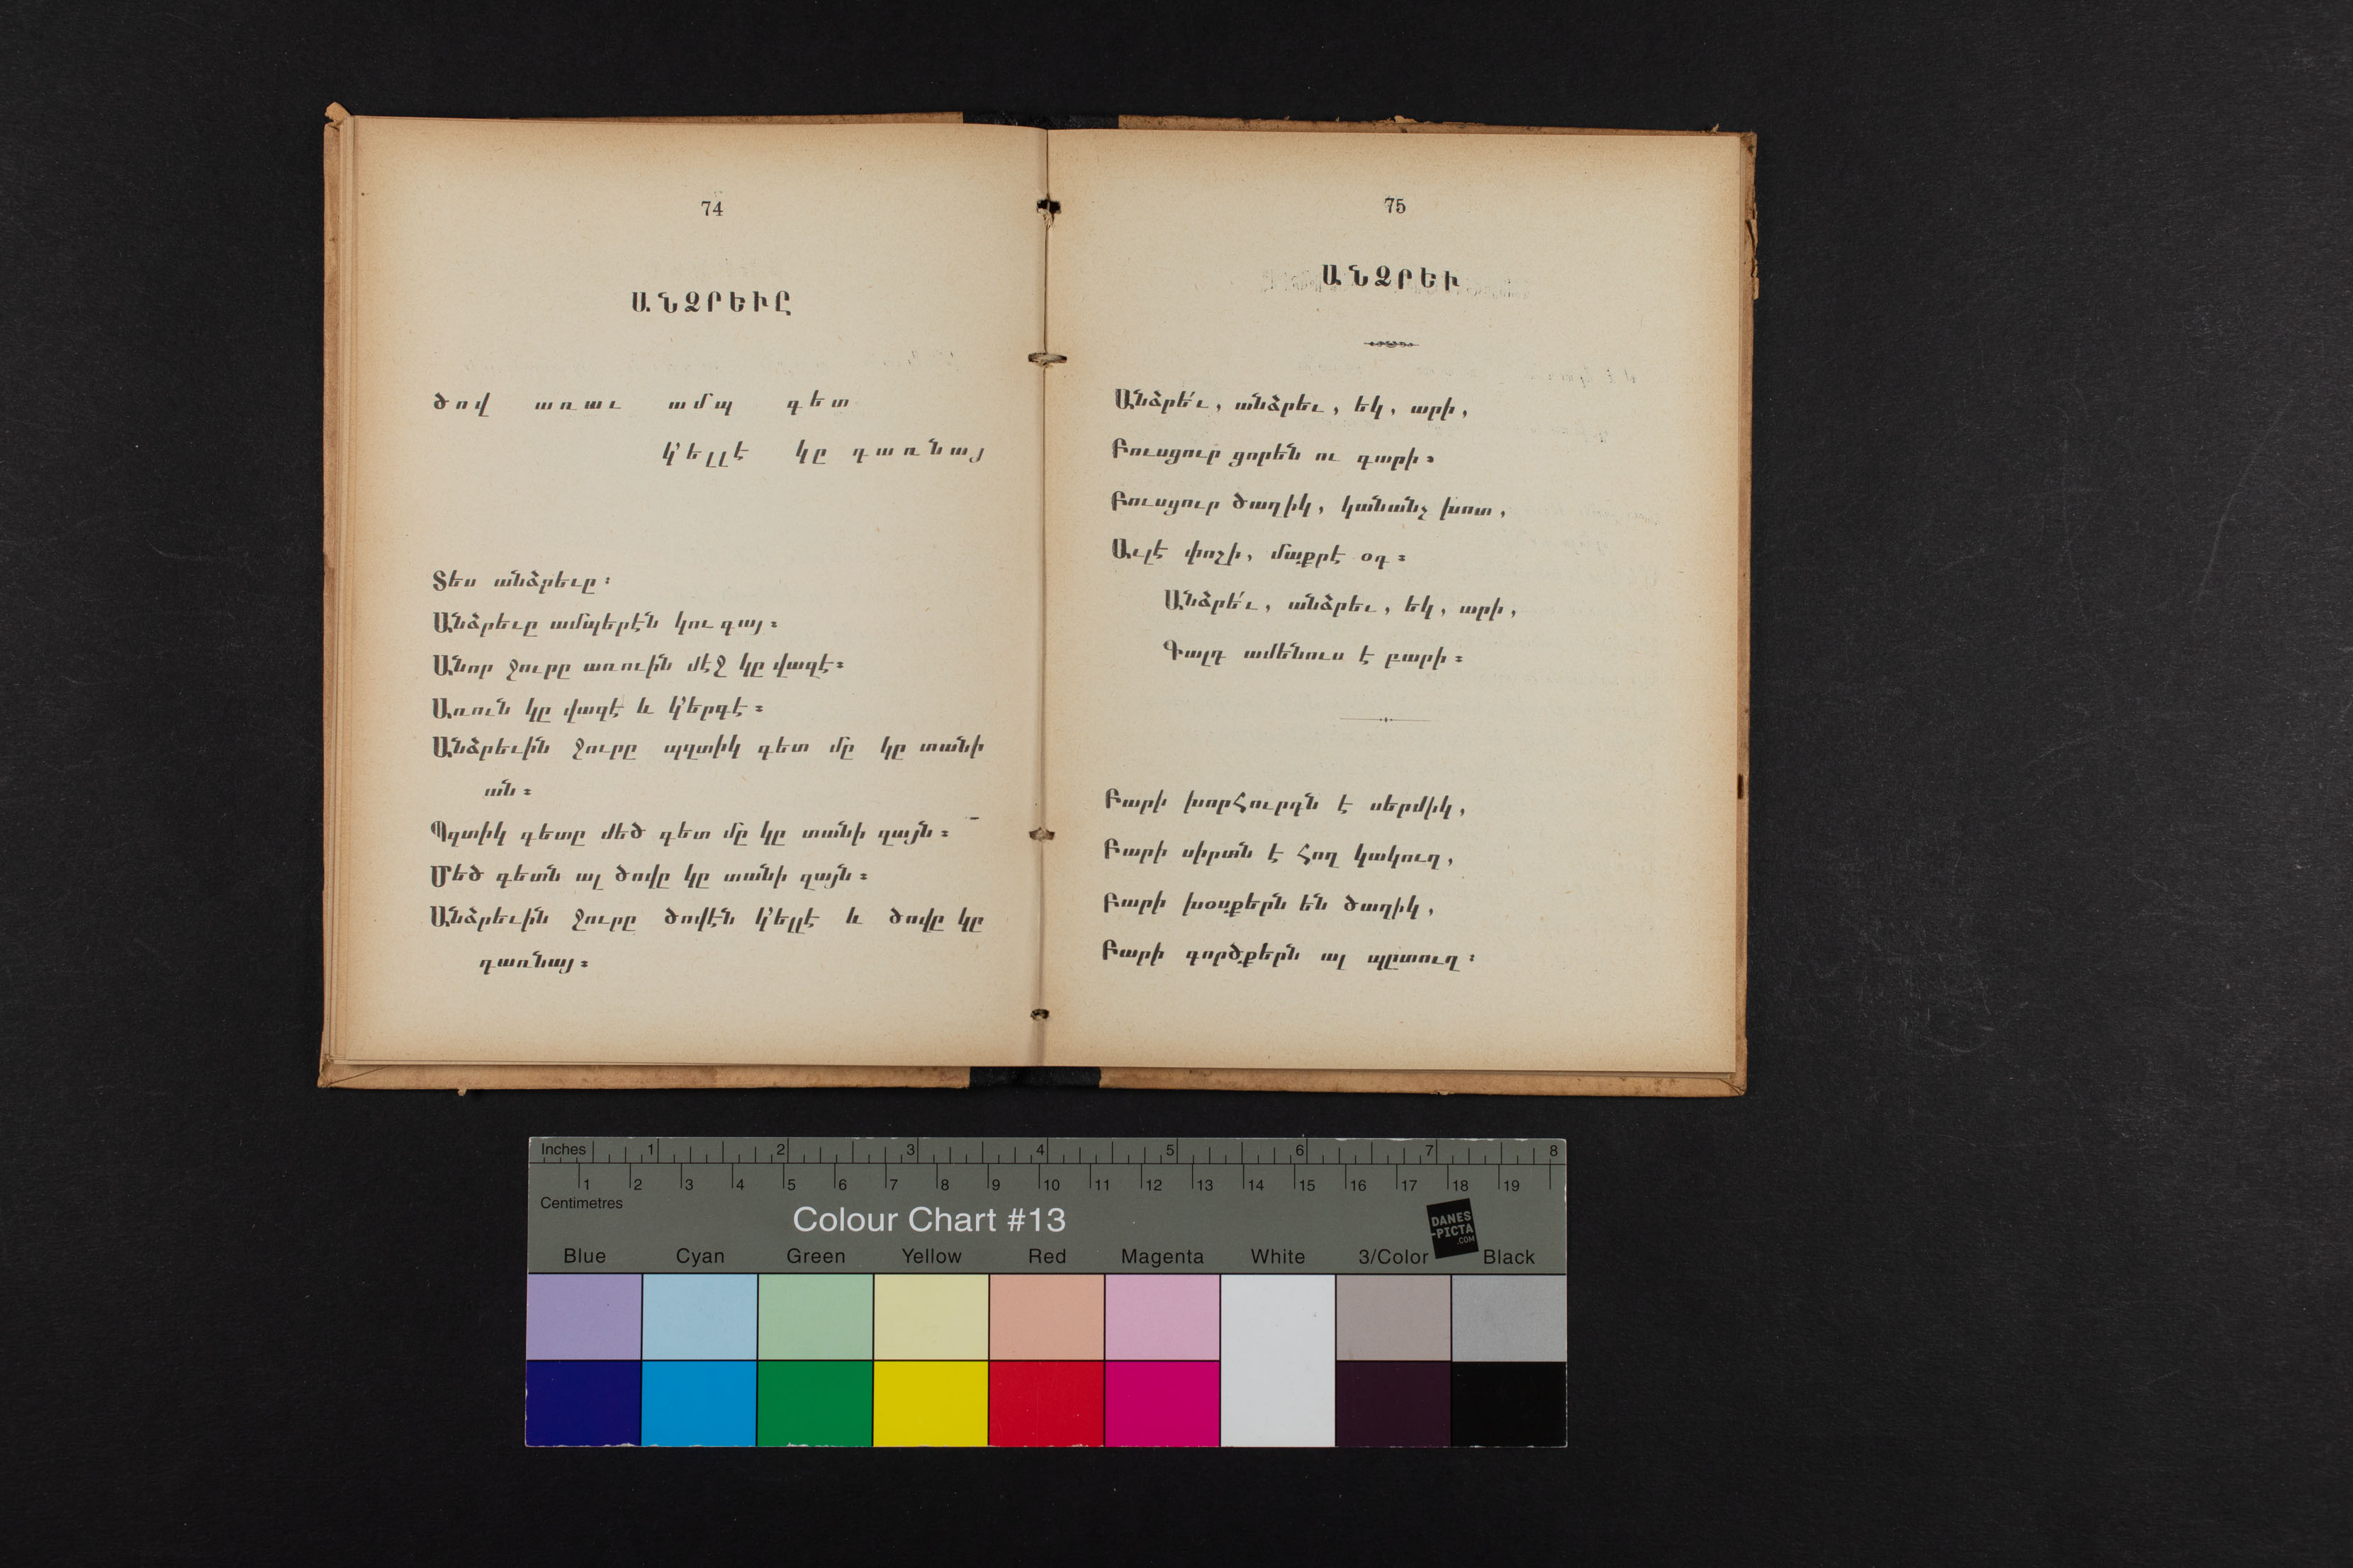 74
ԱՆՁՐԵՒԸ
ծով առաւ ամպ գետ
կ՚ելլէ կը դառնայ
Տես անձրեւը։
Անձրեւը ամպերէն կու գայ։
Անոր ջուրը առուին մէջ կը վազէ։
Առուն կը վազէ և կ՚երգէ։
Անձրեւին ջուրը պզտիկ գետ մը կը տանի
ան։
Պզտիկ գետը մեծ գետ մը կը տանի զայն։
Մեծ գետն ալ ծովը կը տանի զայն։
Անձրեւին ջուրը ծովէն կ՚ելլէ և ծովը կը
դառնայ։
75
ԱՆՁՐԵՒ
Անձրե՛ւ, անձրեւ, եկ, արի,
Բուսցուր ցորեն ու գարի։
Բուսցուր ծաղիկ, կանանչ խոտ,
Աւլէ փոշի, մաքրէ օդ։
Անձրե՛ւ, անձրեւ, եկ, արի,
Գալդ ամենուս է բարի։
Բարի խորհուրդն է սերմիկ,
Բարի սիրտն է հող կակուղ,
Բարի խօսքերն են ծաղիկ,
Բարի գործքերն ալ պըտուղ։
Inches 1 2 3 4 5 6 7 8
1 2 3 4 5 6 7 8 9 10 11 12 13 14 15 16 17 18 19
Centimetres
Colour Chart #13
DANES
-PICTA
.COM
Blue Cyan Green Yellow Red Magenta White 3/Color Black